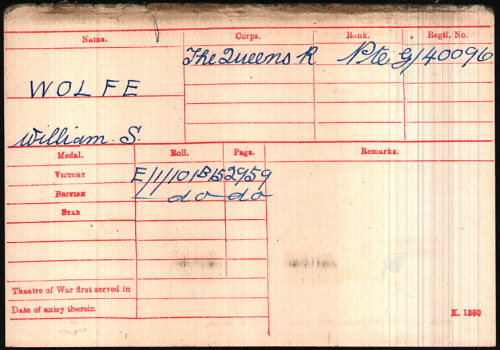 Name. Corps. Rank. Regtl. No.
The Queens R Pte G/40096
WOLFE
William. S.
Medal. Roll. Page. Remarks.
VICTORY E/1/101B15 2959
BRITISH — do — do —
STAR
Theatre of War first served in
Date of entry therein
K. 1380